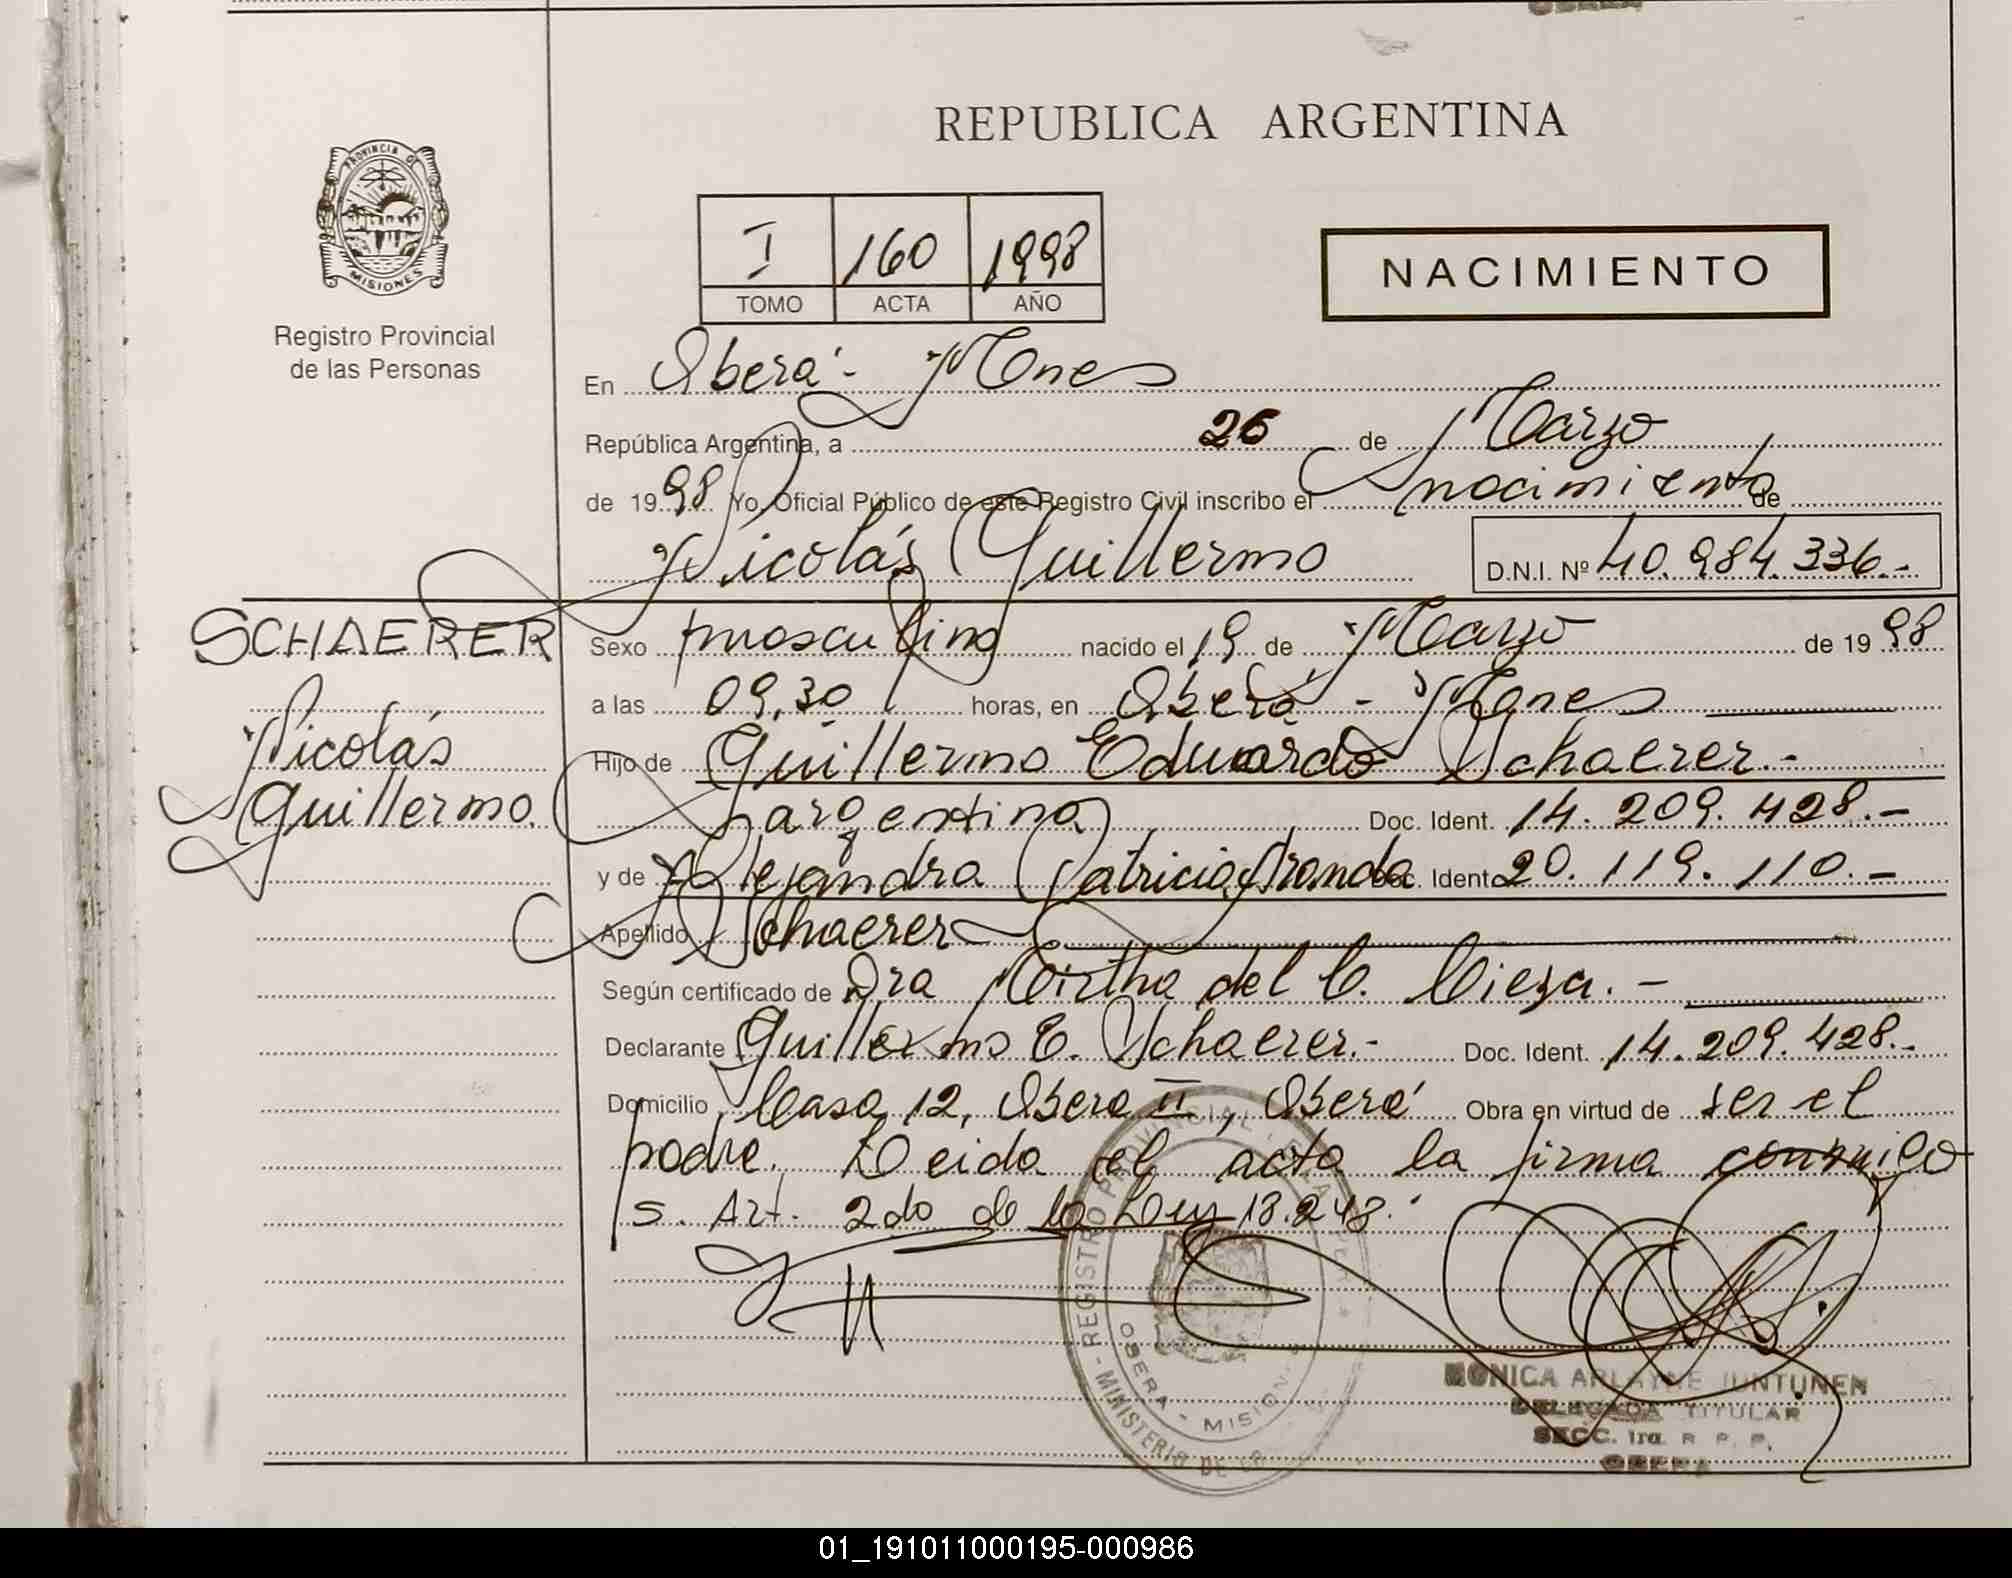 REPUBLICA ARGENTINA
PROVINCIA DE
MISIONES
Registro Provincial
de las Personas
I 160 1998
TOMO ACTA AÑO
NACIMIENTO
En Oberá - Mnes
República Argentina, a 26 de Marzo
de 1998 Yo, Oficial Público de este Registro Civil inscribo el nacimiento de
Nicolás Guillermo D.N.I. Nº 40.984.336.-
SCHAERER
Nicolás
Guillermo
Sexo masculino nacido el 19 de Marzo de 1998
a las 09,30 horas, en Oberá - Mnes
Hijo de Guillermo Eduardo Schaerer.-
argentino Doc. Ident. 14.209.428.-
y de Alejandra Patricia Aranda Doc. Ident 20.119.110.-
Apellido Schaerer
Según certificado de Dra Mirtha del C. Cieza.-
Declarante Guillermo E. Schaerer.- Doc. Ident. 14.209.428.-
Domicilio Casa 12, Oberá II, Oberá Obra en virtud de ser el
padre. Leida el acta la firma conmigo
s. Art. 2do de la Ley 18.248.
REGISTRO PROVINCIAL
MINISTERIO DE
OBERA - MISIONES
MONICA ARLAYNE JUNTUNEN
DELEGADA TITULAR
SECC. 1ra. R. P. P.
OBERA
01_191011000195-000986